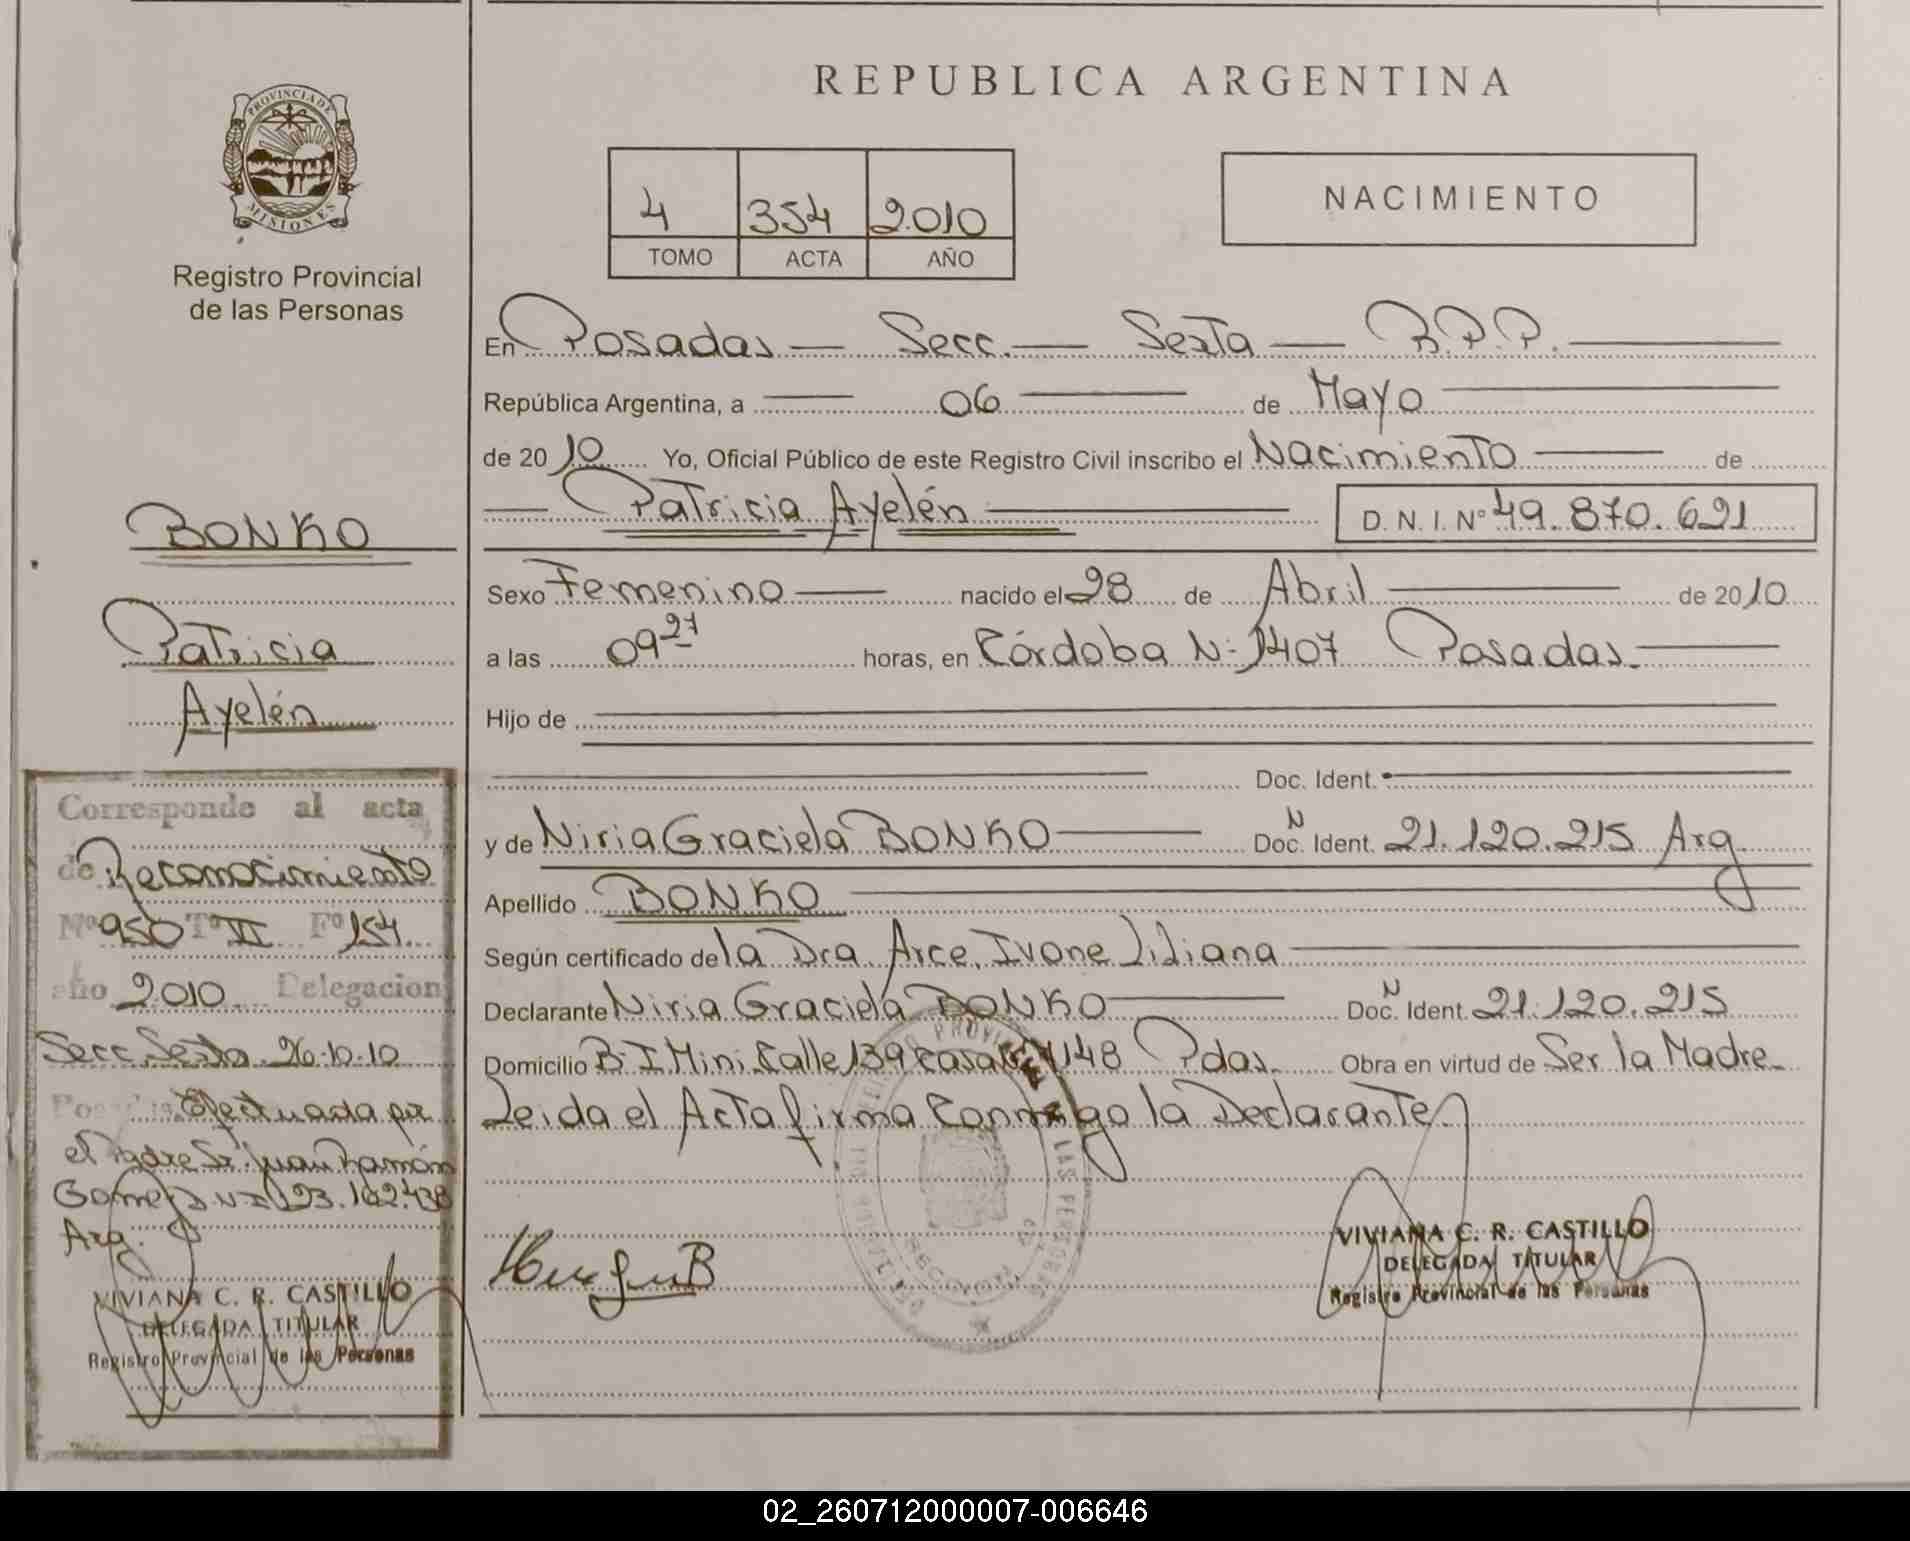 REPUBLICA ARGENTINA
PROVINCIA DE
MISIONES
Registro Provincial
de las Personas
4 354 2010
TOMO ACTA AÑO
NACIMIENTO
En Posadas — Secc. — Sexta — R.P.P.
República Argentina, a 06 de Mayo
de 2010 Yo, Oficial Público de este Registro Civil inscribo el Nacimiento de
Patricia Ayelén D.N.I. Nº 49.870.621
Sexo Femenino nacido el 28 de Abril de 2010
a las 09 27 horas, en Córdoba N: 1407 Posadas.
Hijo de
Doc. Ident.
y de Niria Graciela BONKO Doc. N Ident. 21.120.215 Arg
Apellido BONKO
Según certificado de la Dra Arce, Ivone Liliana
Declarante Niria Graciela BONKO Doc. N Ident. 21.120.215
Domicilio B. I Mini Calle 139 casa 148 Pdas. Obra en virtud de Ser la Madre
Leida el Acta firma Conmigo la Declarante.
VIVIANA C. R. CASTILLO
DELEGADA TITULAR
Registro Provincial de las Personas
BONKO
Patricia
Ayelén
Corresponde al acta
de Reconocimiento
Nº 950 Tº II Fº 154.
año 2010 Delegacion
Secc. Sexta. 26-10-10
Efectuada por
el Padre Sr. Juan Ramón
Gomez D.N.I 23.162.438
Arg.
VIVIANA C. R. CASTILLO
DELEGADA TITULAR
Registro Provincial de las Personas
02_260712000007-006646